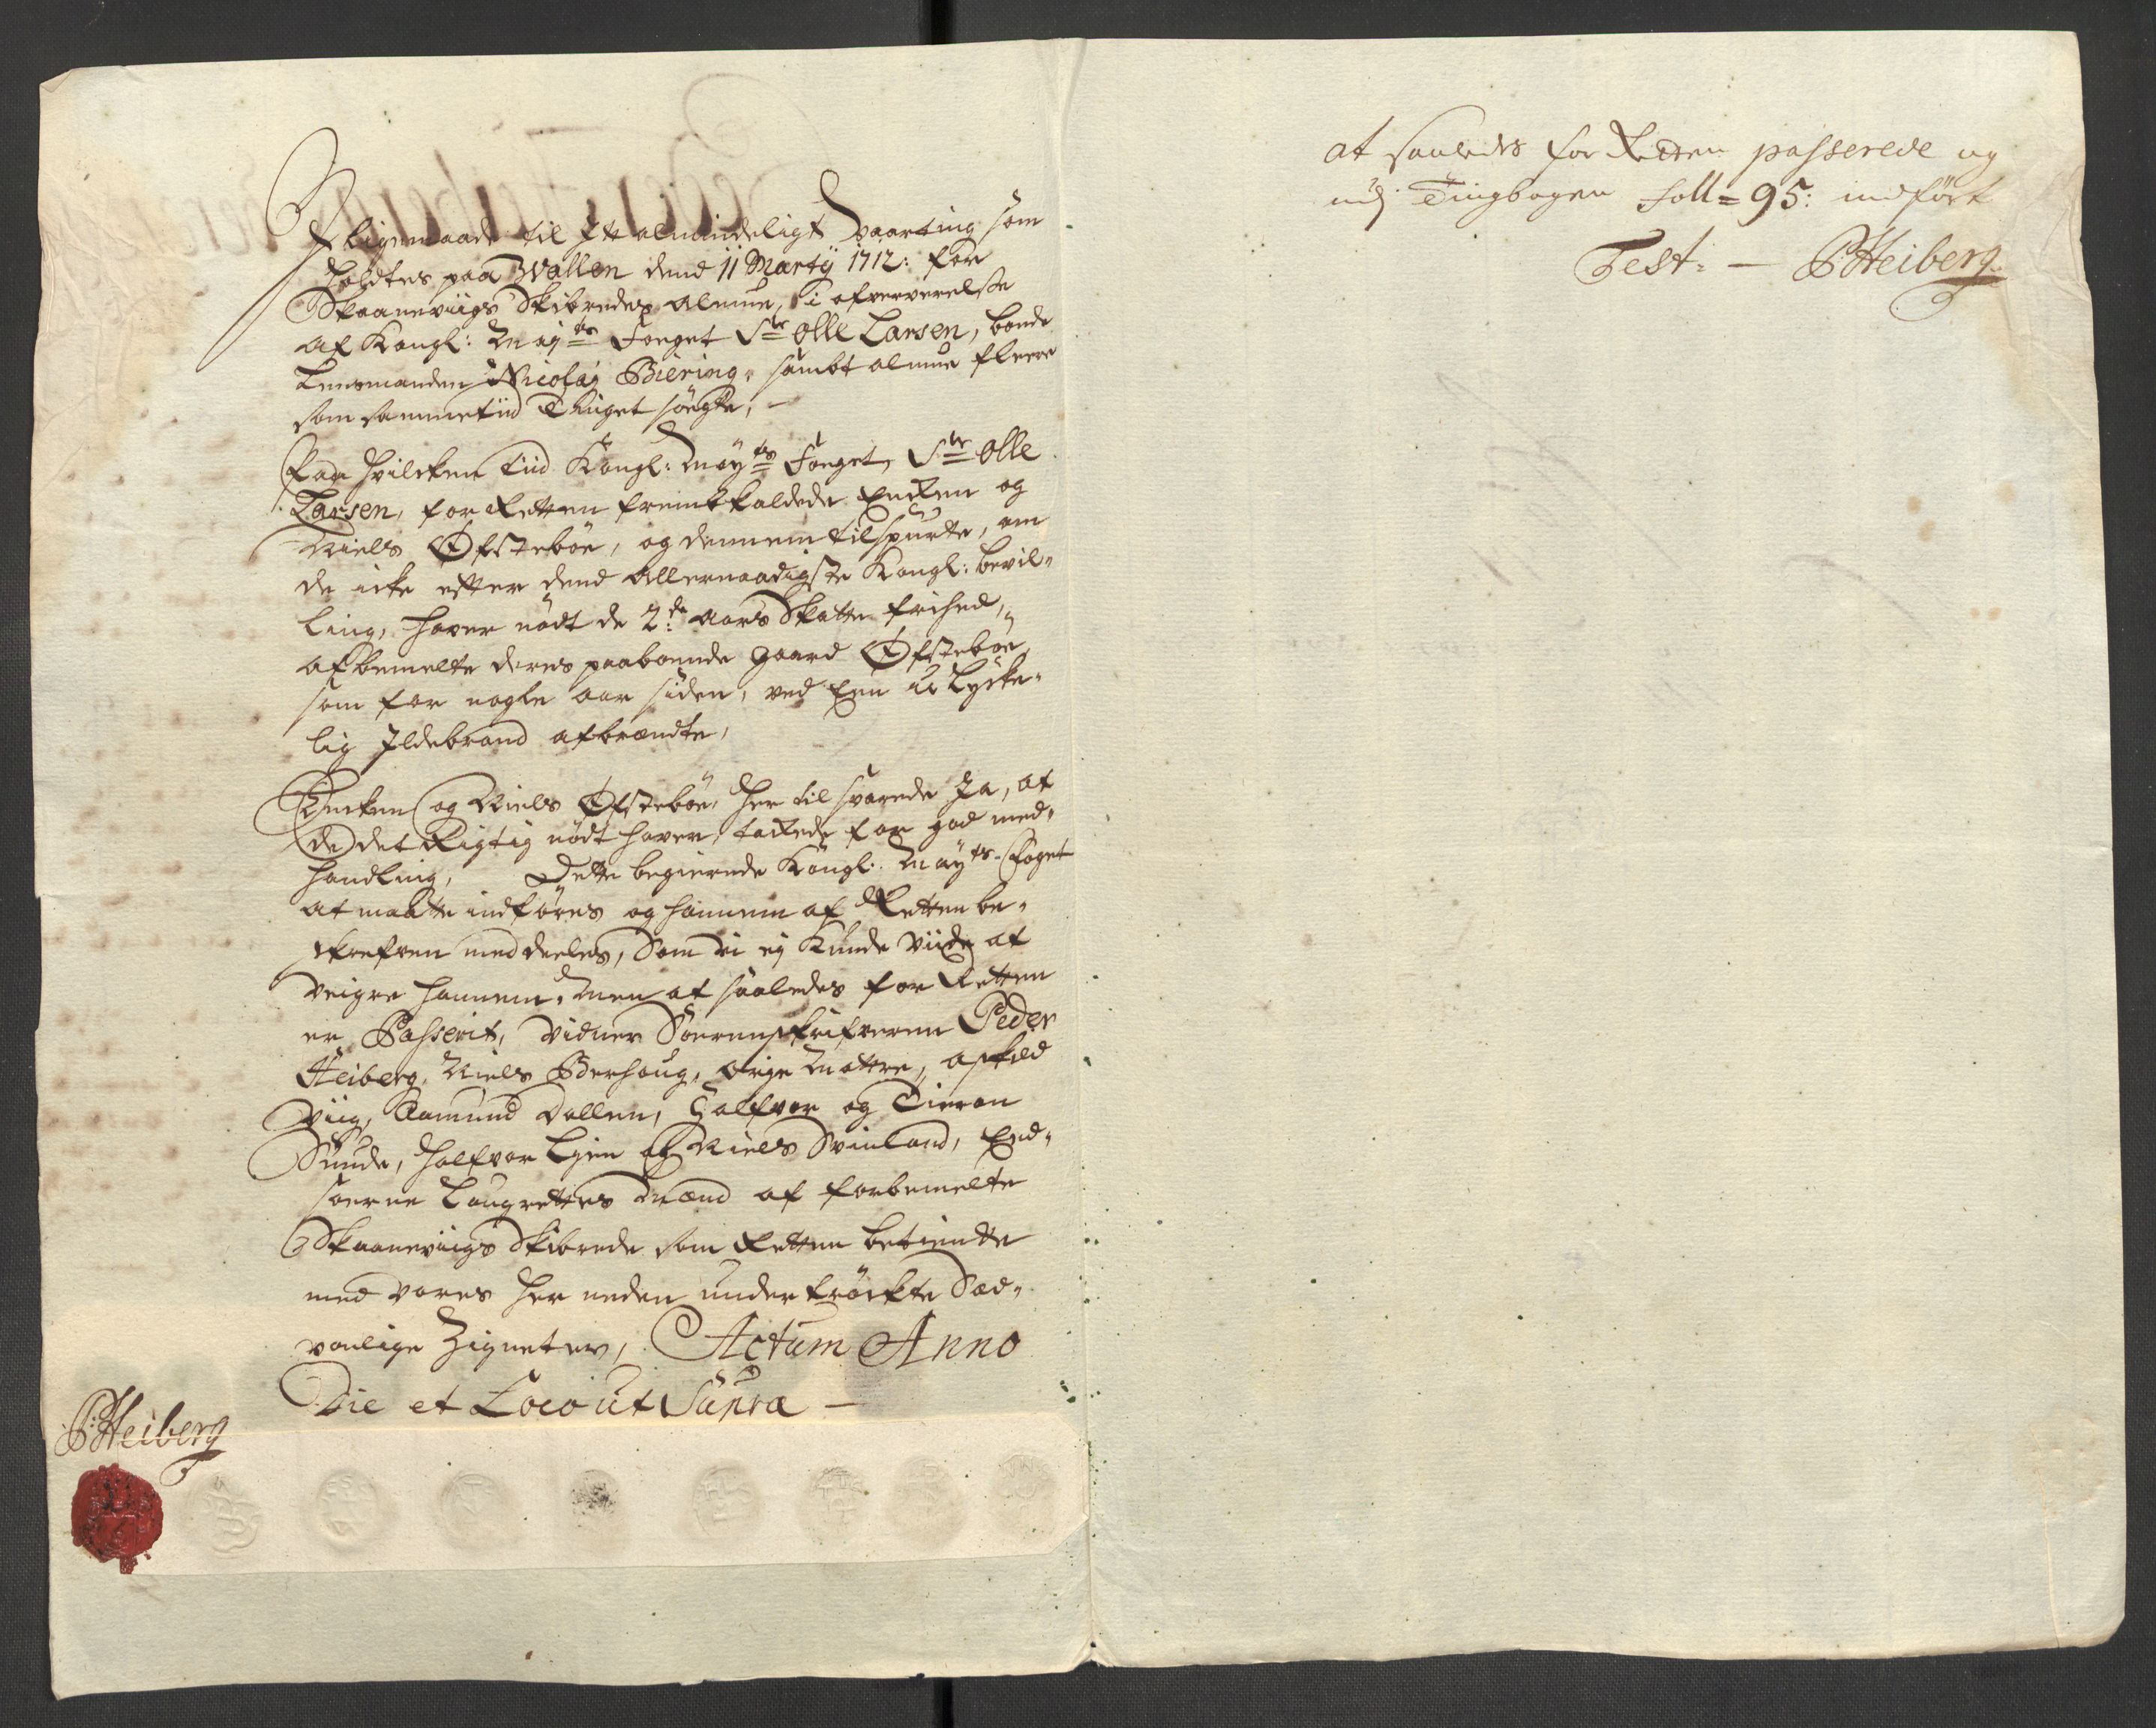 I ligemaade til Itt almindeligt Vaarting som
holdtes paa Wallen dend 11 Martij 1712: for
Skaaneviigs Skibredes almue, i ofververelse
af Kongl: Maÿ^ts Foeget S^r Olle Larsen, bonde
Lensmanden Nicolaj Biering, sambt almue fleere
som sammetiid Tinget söegte, -
Paa hvilcken tiid Kongl: Maÿ^ts Foeget, S^r Olle
Larsen, for Retten fremkaldede Encken og
Niels Øfsteböe, og dennem tilspurte, om
de icke efter dend Allernaadigste Kongl: bevil-
ling, haver nödt de 2^de aars Skatte frihed,
af bemelte deres paaboende gaard Øfsteböe,
som for nogle aar siden, ved Een u Lycke-
lig Ildebrand afbrændte,
Encken og Niels Øfsteböe, her til svarede Ja, at
de det Rigtig nödt haver, tackede for god med-
handling, Dette begierede Kongl: Maÿ^ts Foget
at maatte indføres og hannem af Retten be-
skrefven meddeeles, Som vi ej kunde viide at
veigre hannem. Men at saaledes for Retten
er Passerit, vidner Soerenskrifveren Peder
Heiberg, Niels Berhoug, Mattre, Askild
Viig, Aamund Vallen, Halfvor og
Sunde, Halfvor Lien og Niels Svinland, Eed-
soerne Laugrettes Mænd af forbemelte
Skaaneviigs Skibrede som Retten betiente
med vores her neden under tröckte Sæd-
vanlige Zigneter, Actum Anno
Die et Loco ut Supra -
P: Heiberg
at saaledes for Retten passerede og
udj Tingbogen foll = 95: indført
Test: - P Heiberg